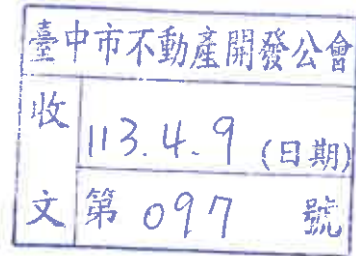 臺中市不動產開發公會
收文
113.4.9 (日期)
第 097 號